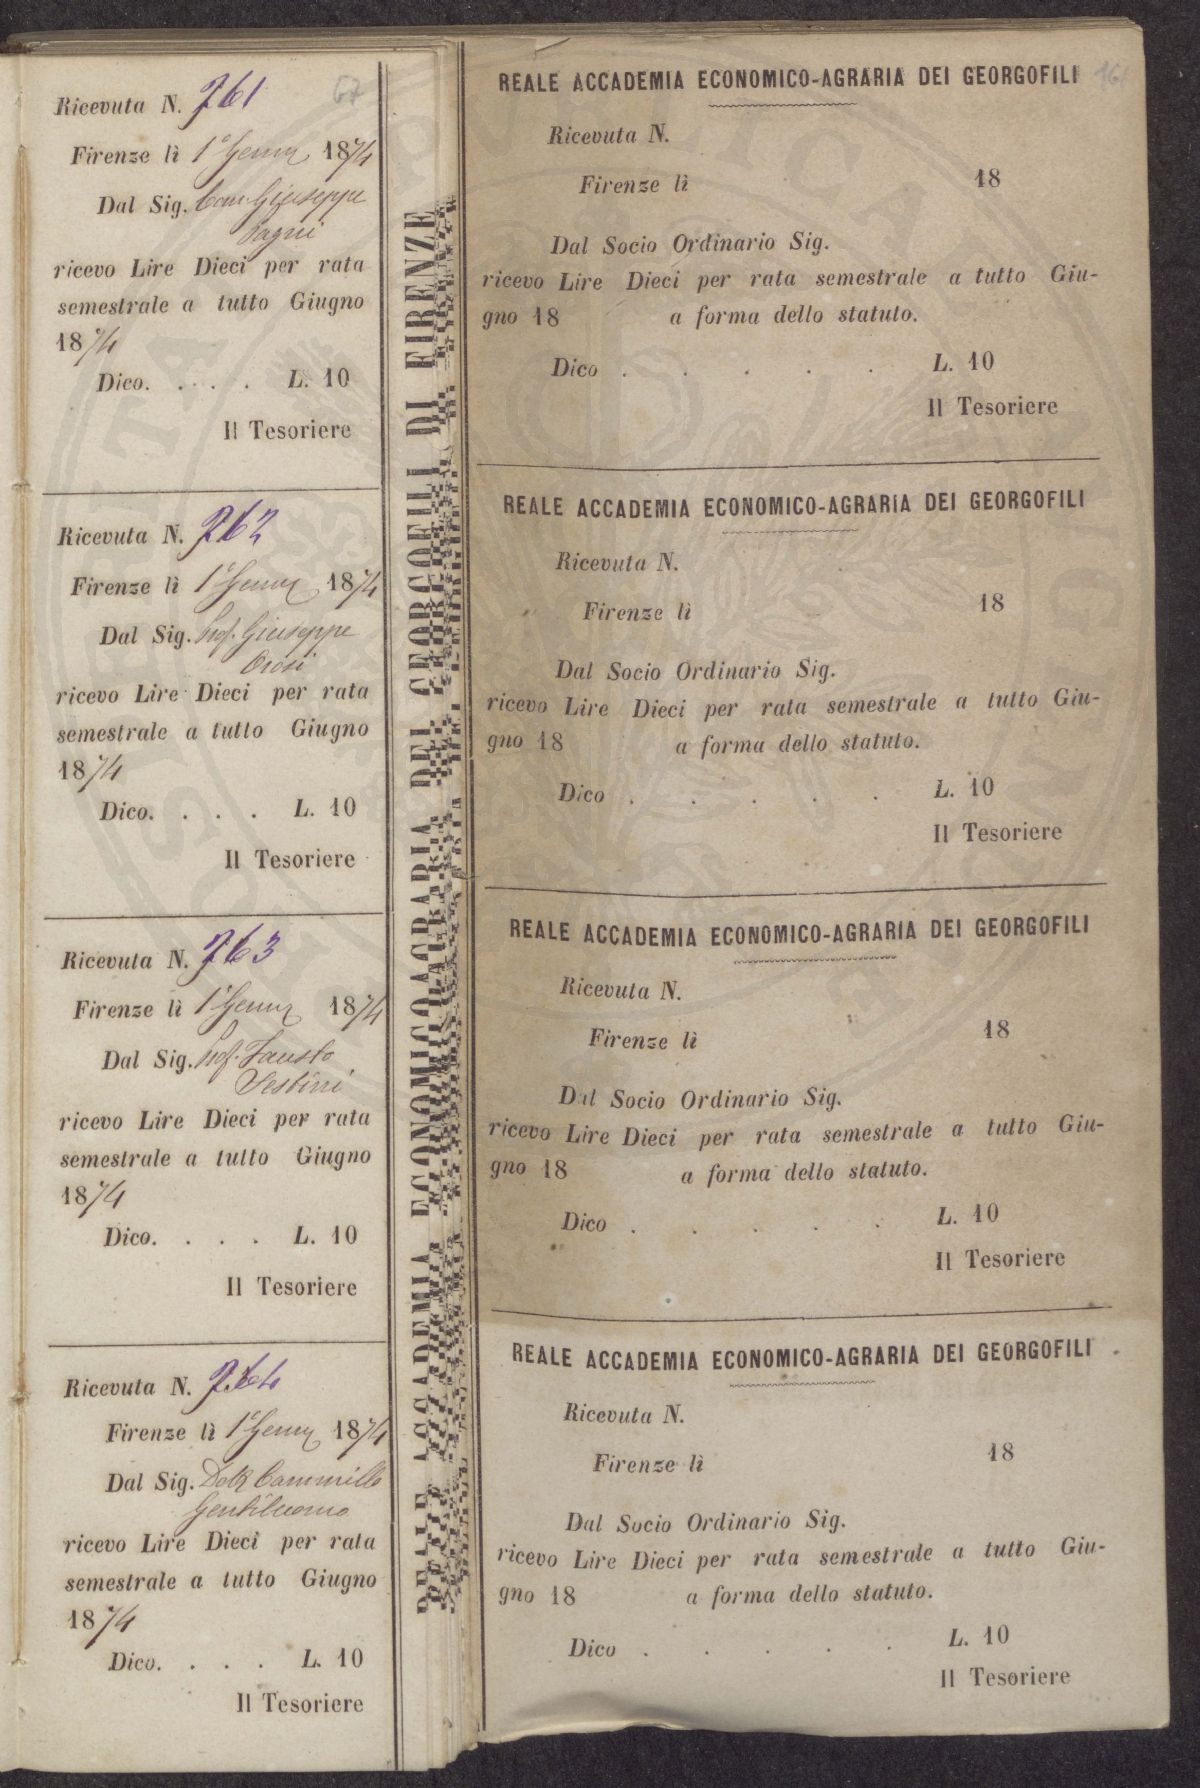 Ricevuta N. 261
67
Firenze lì 1° Genn 1874
Dal Sig. Cav Giuseppe
Pagni
ricevo Lire Dieci per rata
semestrale a tutto Giugno
1874
Dico. . . . L. 10
Il Tesoriere
Ricevuta N. 262
Firenze lì 1° Genn 1874
Dal Sig. Prof. Giuseppe
Orosi
ricevo Lire Dieci per rata
semestrale a tutto Giugno
1874
Dico. . . . L. 10
Il Tesoriere
Ricevuta N. 263
Firenze lì 1° Genn 1874
Dal Sig. Prof. Fausto
Sestini
ricevo Lire Dieci per rata
semestrale a tutto Giugno
1874
Dico. . . . L. 10
Il Tesoriere
Ricevuta N. 264
Firenze lì 1° Genn 1874
Dal Sig. Dott Cammillo
Gentiluomo
ricevo Lire Dieci per rata
semestrale a tutto Giugno
1874
Dico. . . . L. 10
Il Tesoriere
REALE ACCADEMIA ECONOMICO-AGRARIA DEI GEORGOFILI DI FIRENZE
REALE ACCADEMIA ECONOMICO-AGRARIA DEI GEORGOFILI
Ricevuta N.
Firenze lì 18
Dal Socio Ordinario Sig.
ricevo Lire Dieci per rata semestrale a tutto Giu-
gno 18 a forma dello statuto.
Dico . . . . . L. 10
Il Tesoriere
REALE ACCADEMIA ECONOMICO-AGRARIA DEI GEORGOFILI
Ricevuta N.
Firenze lì 18
Dal Socio Ordinario Sig.
ricevo Lire Dieci per rata semestrale a tutto Giu-
gno 18 a forma dello statuto.
Dico . . . . . L. 10
Il Tesoriere
REALE ACCADEMIA ECONOMICO-AGRARIA DEI GEORGOFILI
Ricevuta N.
Firenze lì 18
Dal Socio Ordinario Sig.
ricevo Lire Dieci per rata semestrale a tutto Giu-
gno 18 a forma dello statuto.
Dico . . . . . L. 10
Il Tesoriere
REALE ACCADEMIA ECONOMICO-AGRARIA DEI GEORGOFILI
Ricevuta N.
Firenze lì 18
Dal Socio Ordinario Sig.
ricevo Lire Dieci per rata semestrale a tutto Giu-
gno 18 a forma dello statuto.
Dico . . . . . L. 10
Il Tesoriere